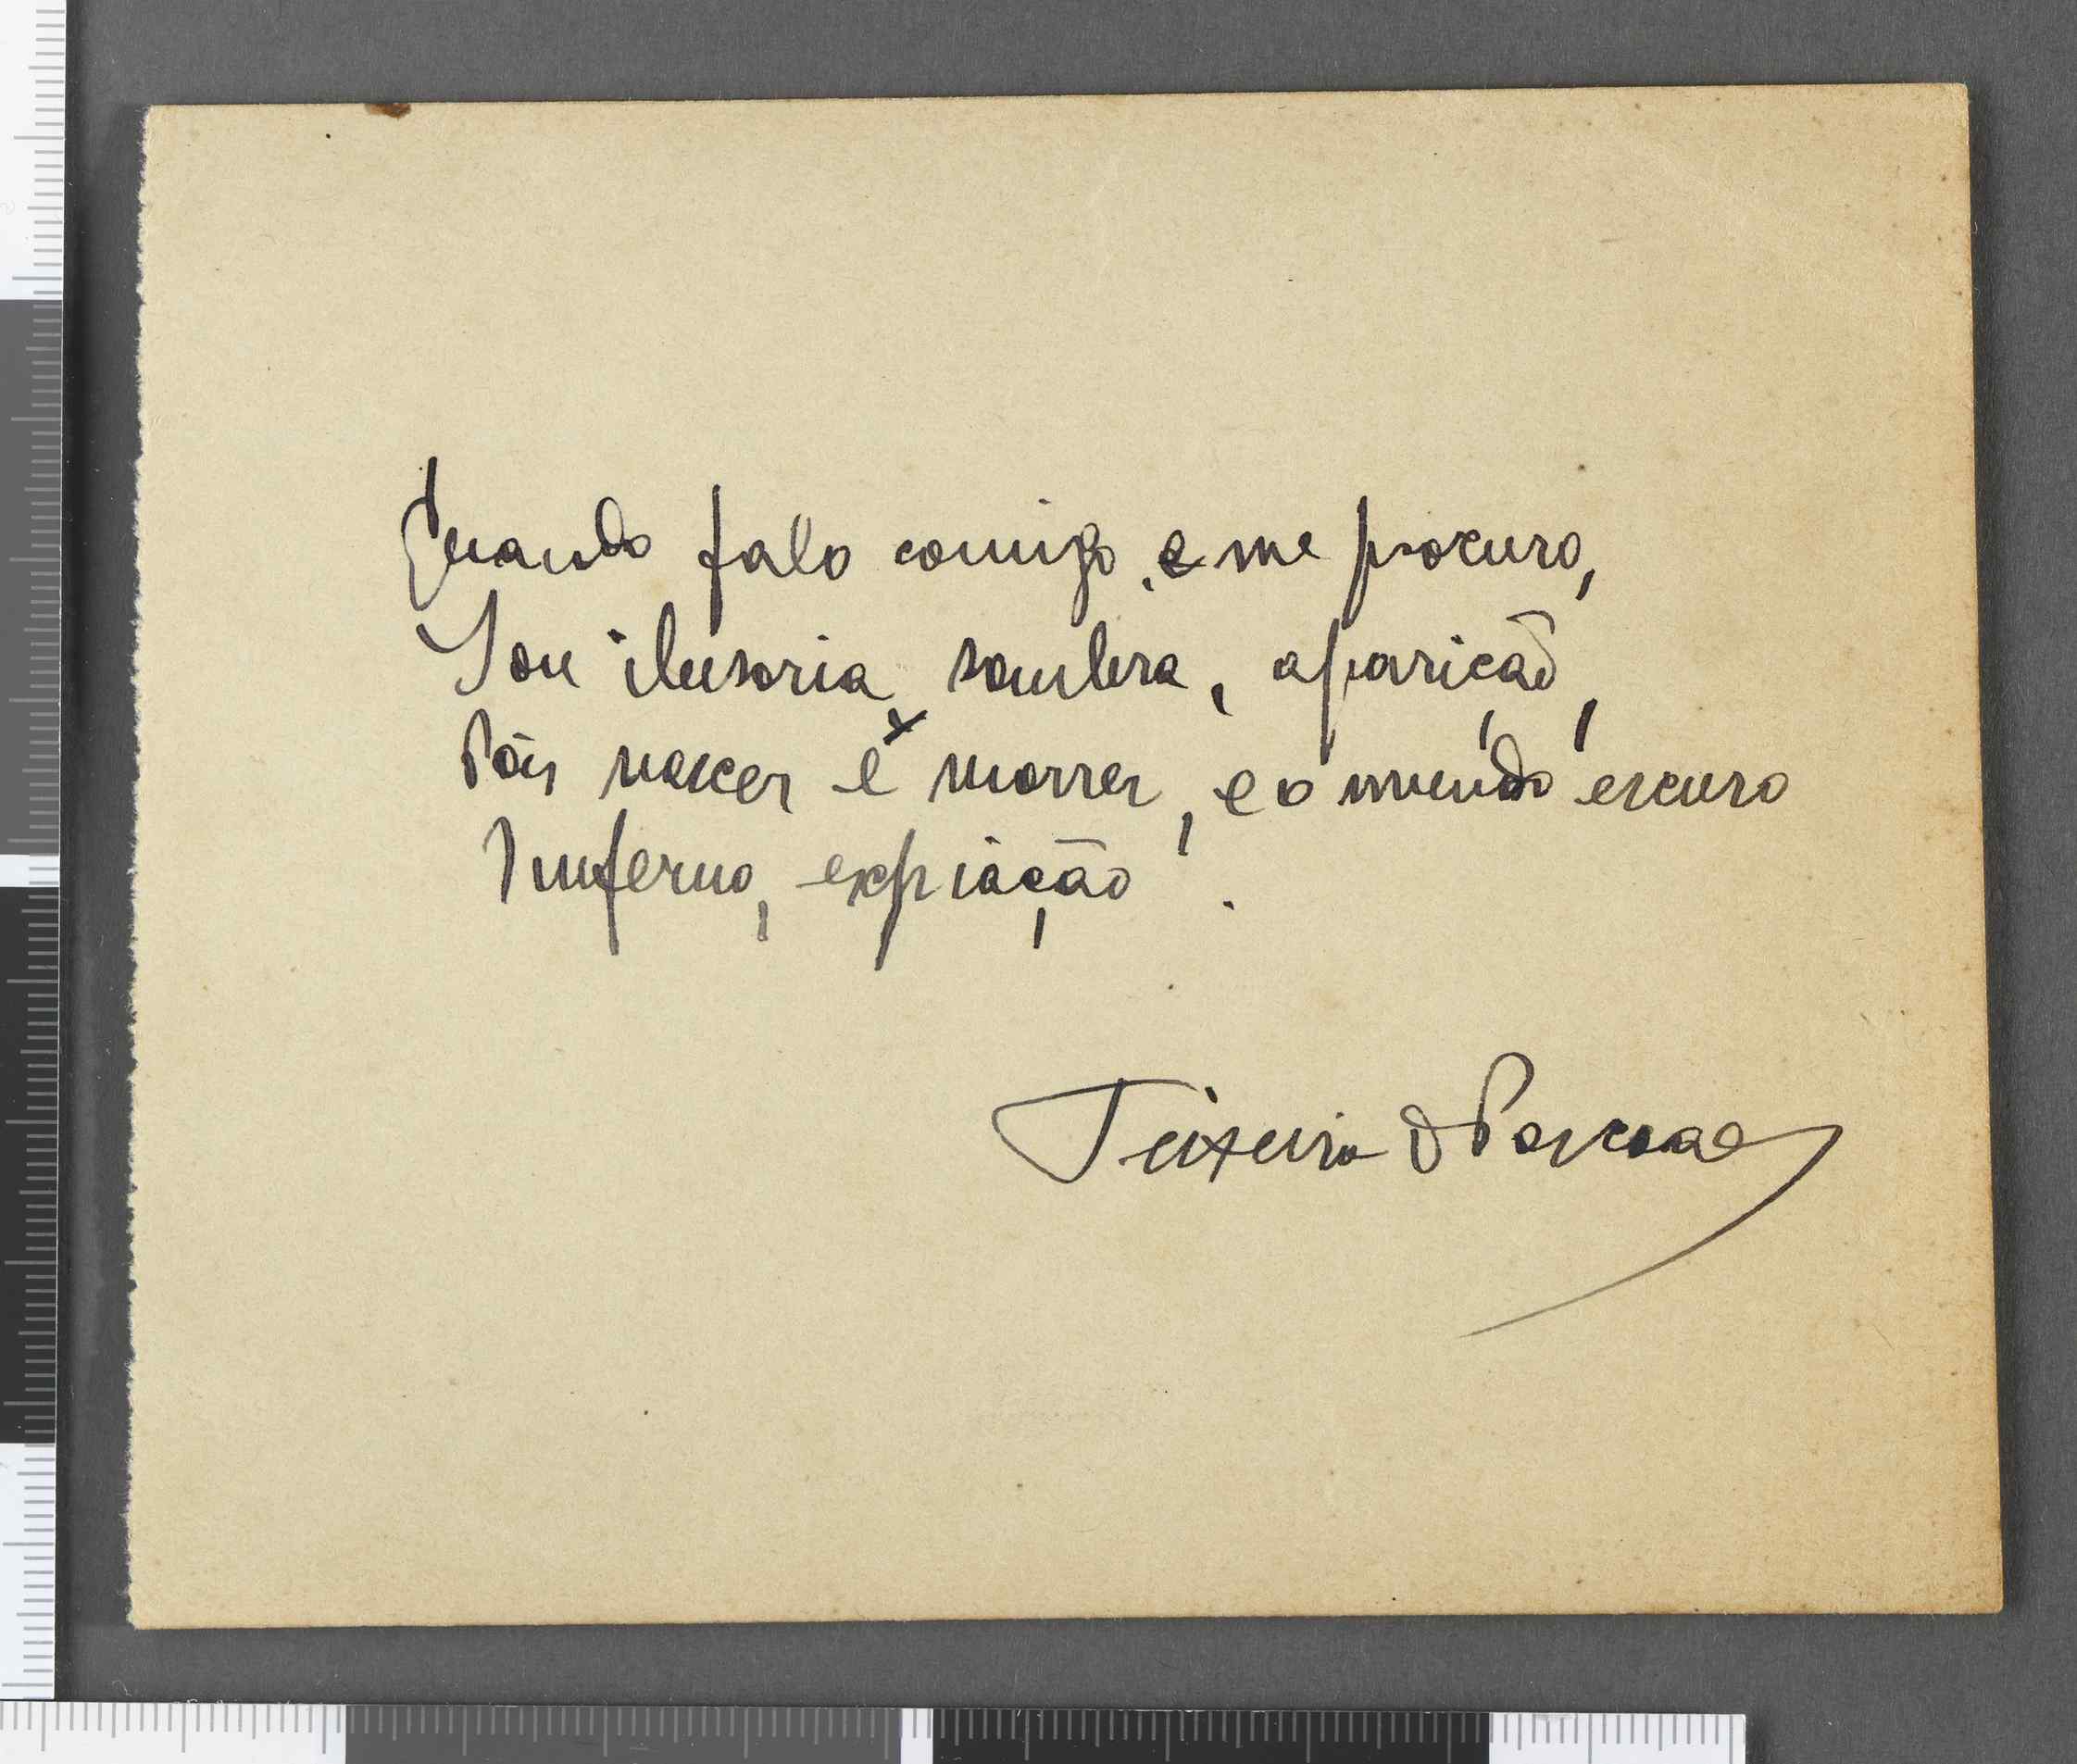 Quando falo comigo, e me procuro,
Sou ilusoria sombra, aparição,
Pois nascer é morrer, e o mundo escuro
Inferno, expiação.
Teixeira de Pascoaes